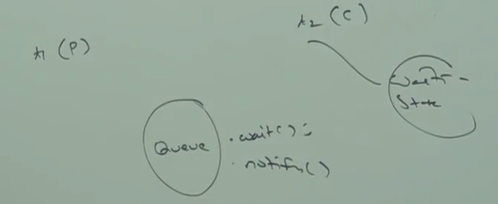 t2 (C)
t1 (P)
wait-
State
Queue
.wait();
.notify()